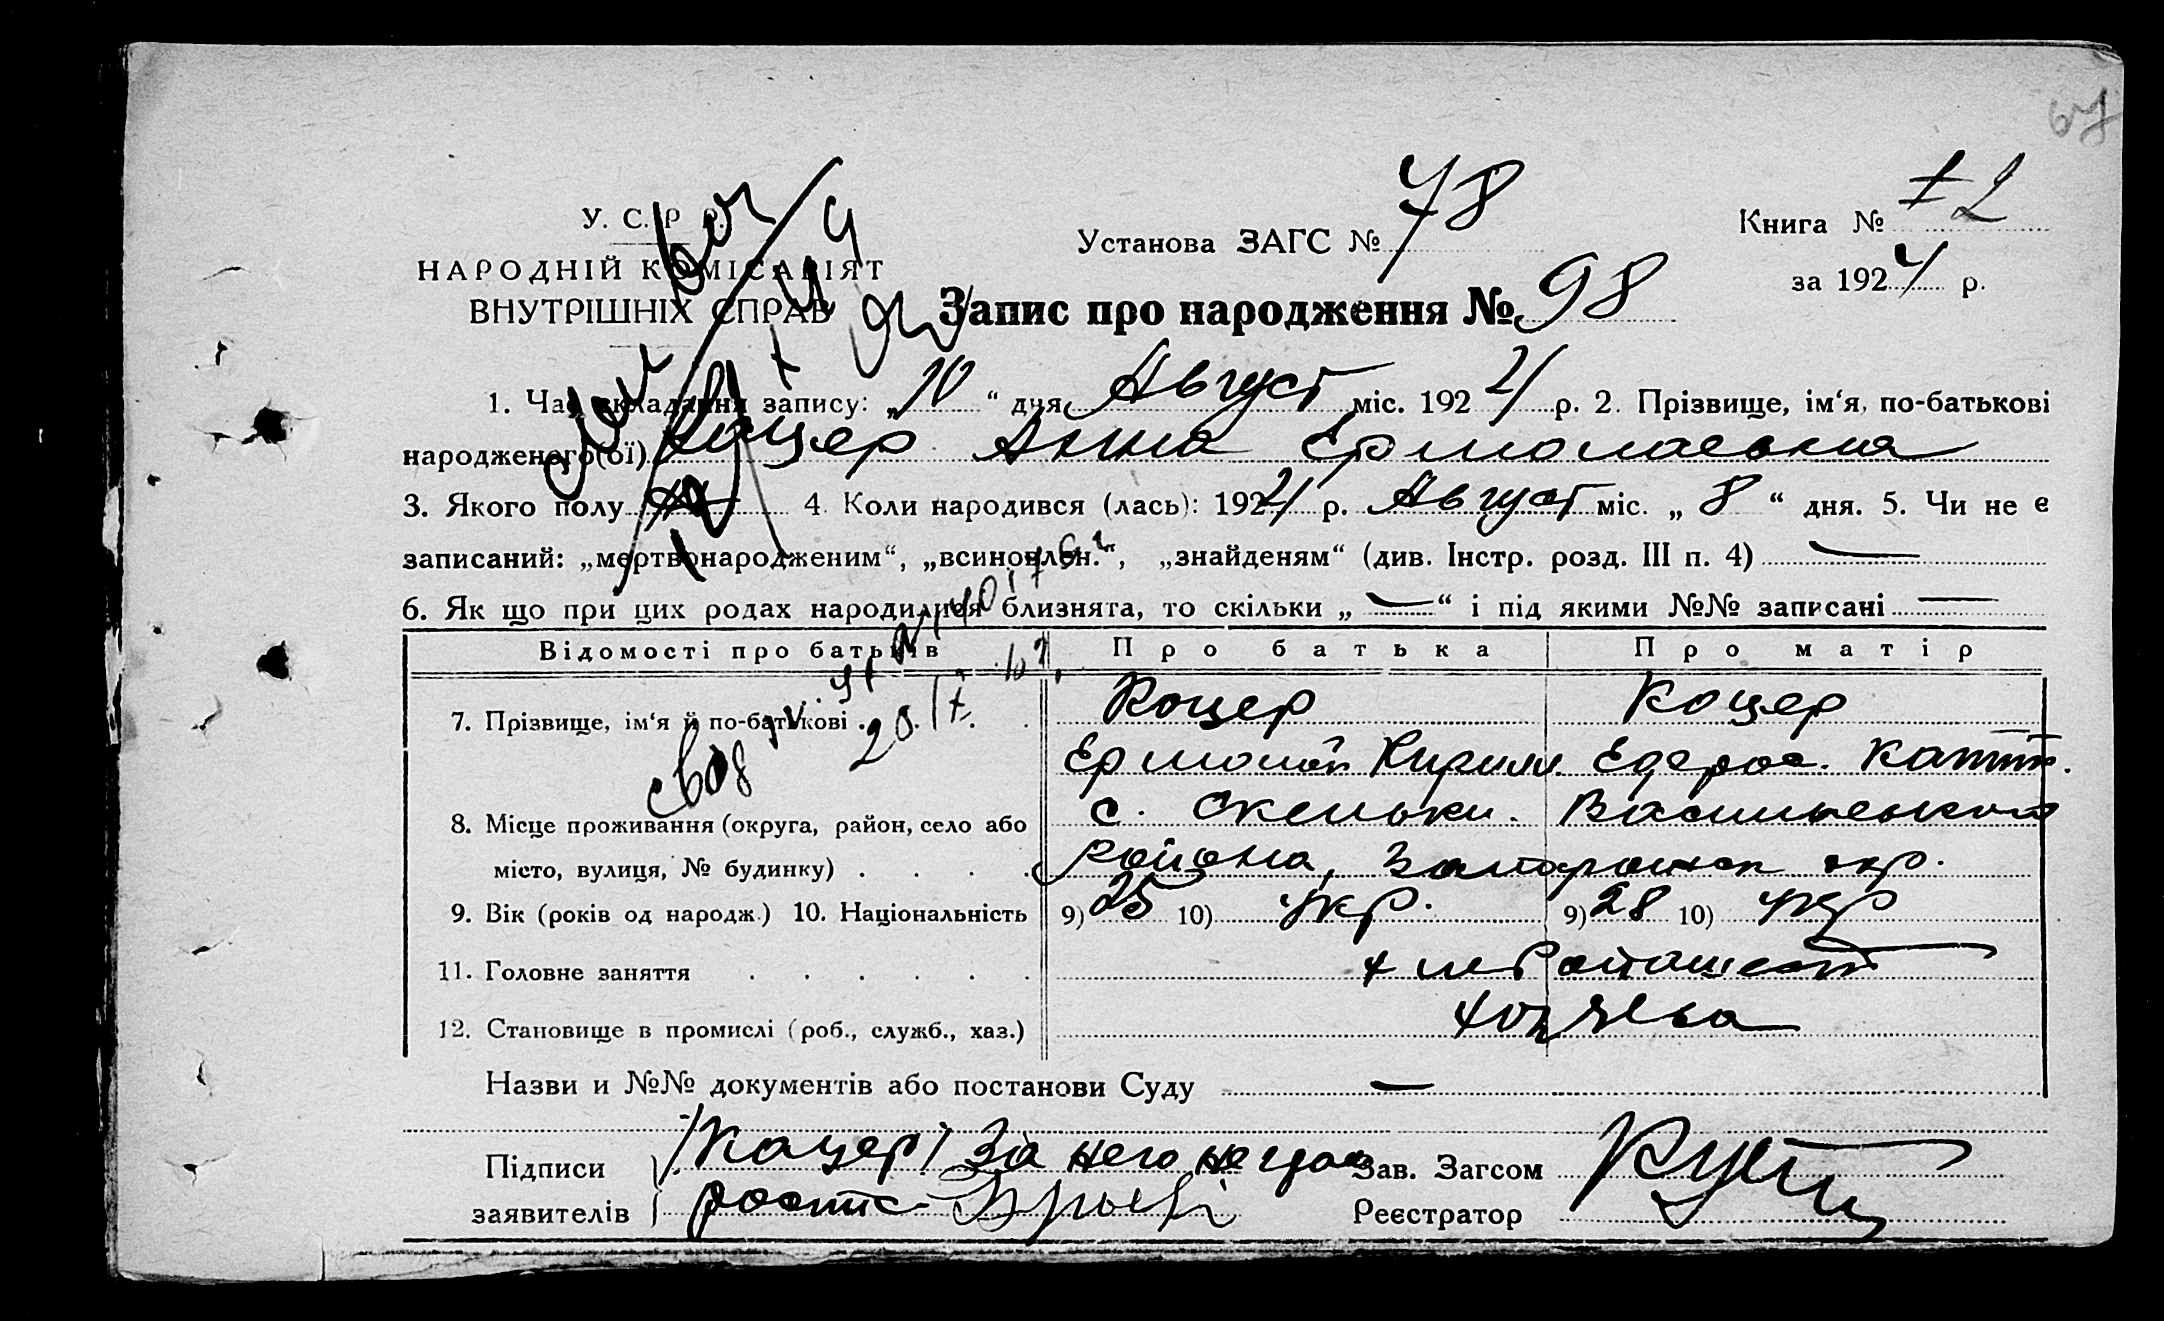 67
У. С. Р. Р.
НАРОДНІЙ КОМІСАРІЯТ
ВНУТРІШНІХ СПРАВ
Установа ЗАГС № 78
Книга № 2
за 1924 р.
Запис про народження № 98
1. Час складання запису: „10“ дня Август міс. 1924 р. 2. Прізвище, ім'я, по-батькові
народженого(ої) Коцер Анна Ермолаевна
3. Якого полу 4. Коли народився (лась): 1924 р. Август міс. „8“ дня. 5. Чи не є
записаний: „мертвонародженим“, „всиновлен.“, „знайденям“ (див. Інстр. розд. III п. 4) —
6. Як що при цих родах народилися близнята, то скільки „—“ і під якими №№ записані —
Відомості про батьків Про батька Про матір
7. Прізвище, ім'я й по-батькові Коцер Коцер
Ермолай Кирил.
8. Місце проживання (округа, район, село або с. Васильевского
місто, вулиця, № будинку) района, Запорожск окр.
9. Вік (років од народж.) 10. Національність 9) 25 10) укр. 9) 28 10) укр
11. Головне заняття хлебопашест
12. Становище в промислі (роб., служб., хаз.) хозяева
Назви и №№ документів або постанови Суду —
Підписи /Коцер/ За него негра Зав. Загсом
заявителів роспис Реєстратор